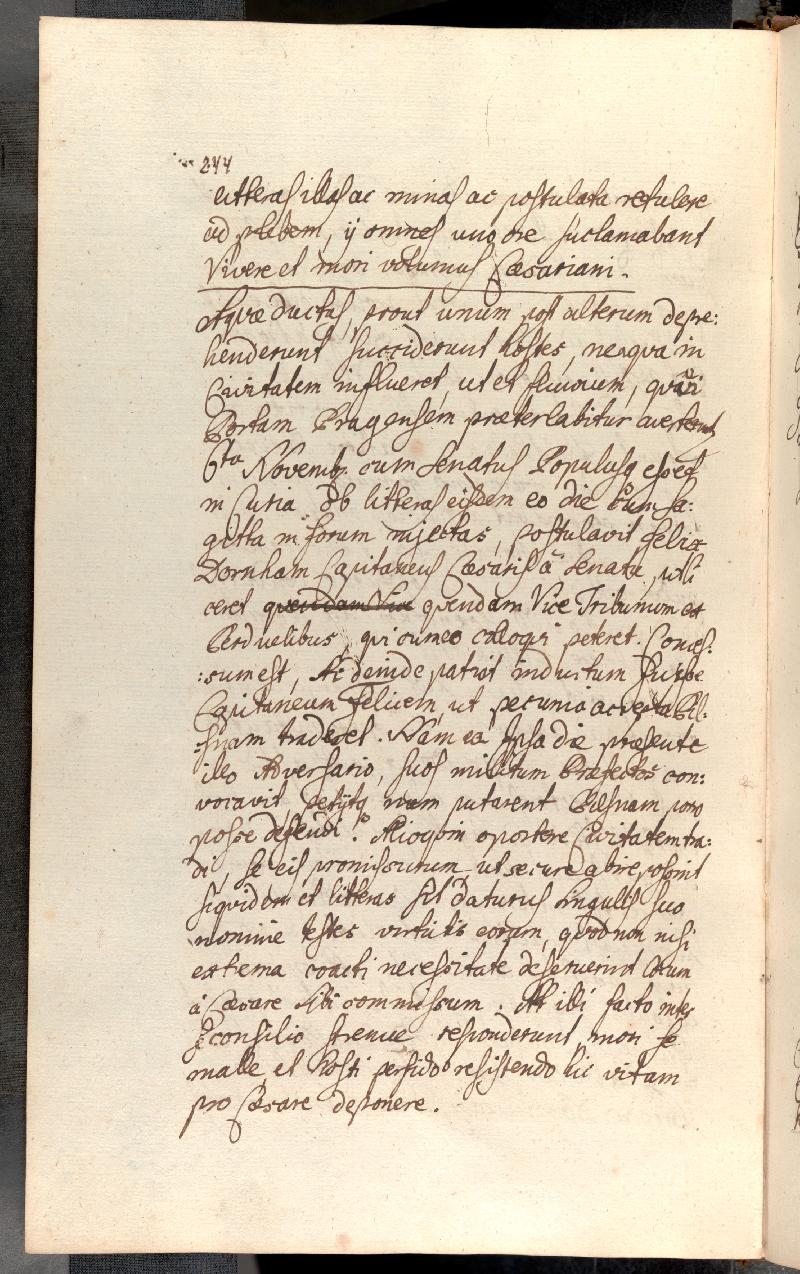 244
litteras illas ac minas ac postulata retulere
ad plebem, ij omnes uno ore suclamabant
Vivere et mori volumus Cæsariani.
Aquæ ductus, prout unum post alterum depre:
henderunt succiderunt hostes, neaqva in
Civitatem influeret, ut et fluvium, qvi
Portam Pragensem præterlabitur averterent
6ta Novemb. cum Senatus Populusq esset
in Curia ob litteras eisdem eo die cum sa:
gitta in forum injectas, postulavit Felix
Dornham Capitaneus Cæsaris à Senatu, ut li
ceret qvendam Vice qvendam Vice Tribunum ex
Perduelibus, qvi cum eo colloqvi peteret. Conces:
:sum est, Ac deinde patuit inductum fuisse
Capitaneum Felicem, ut pecunia accepta Pil:
:snam traderet. Nam ea ipsa die præsente
illo Adversario, suos militum Præfectos con:
vocavit petijtq num putarent Pilsnam porro
posse defendi? Alioqvin oportere Civitatem tra:
di, se eis promissurum ut secure abire possint
siqvidem et litteras sit daturus singulis suo
nomine testes virtutis eorum, qvod non nisi
extrema coacti necessitate deseruerint locum
à Cæsare sibi commissum. At illi facto inter
se consilio strenue responderunt, mori se
malle et hosti perfido resistendo hic vitam
pro Cæsare deponere.